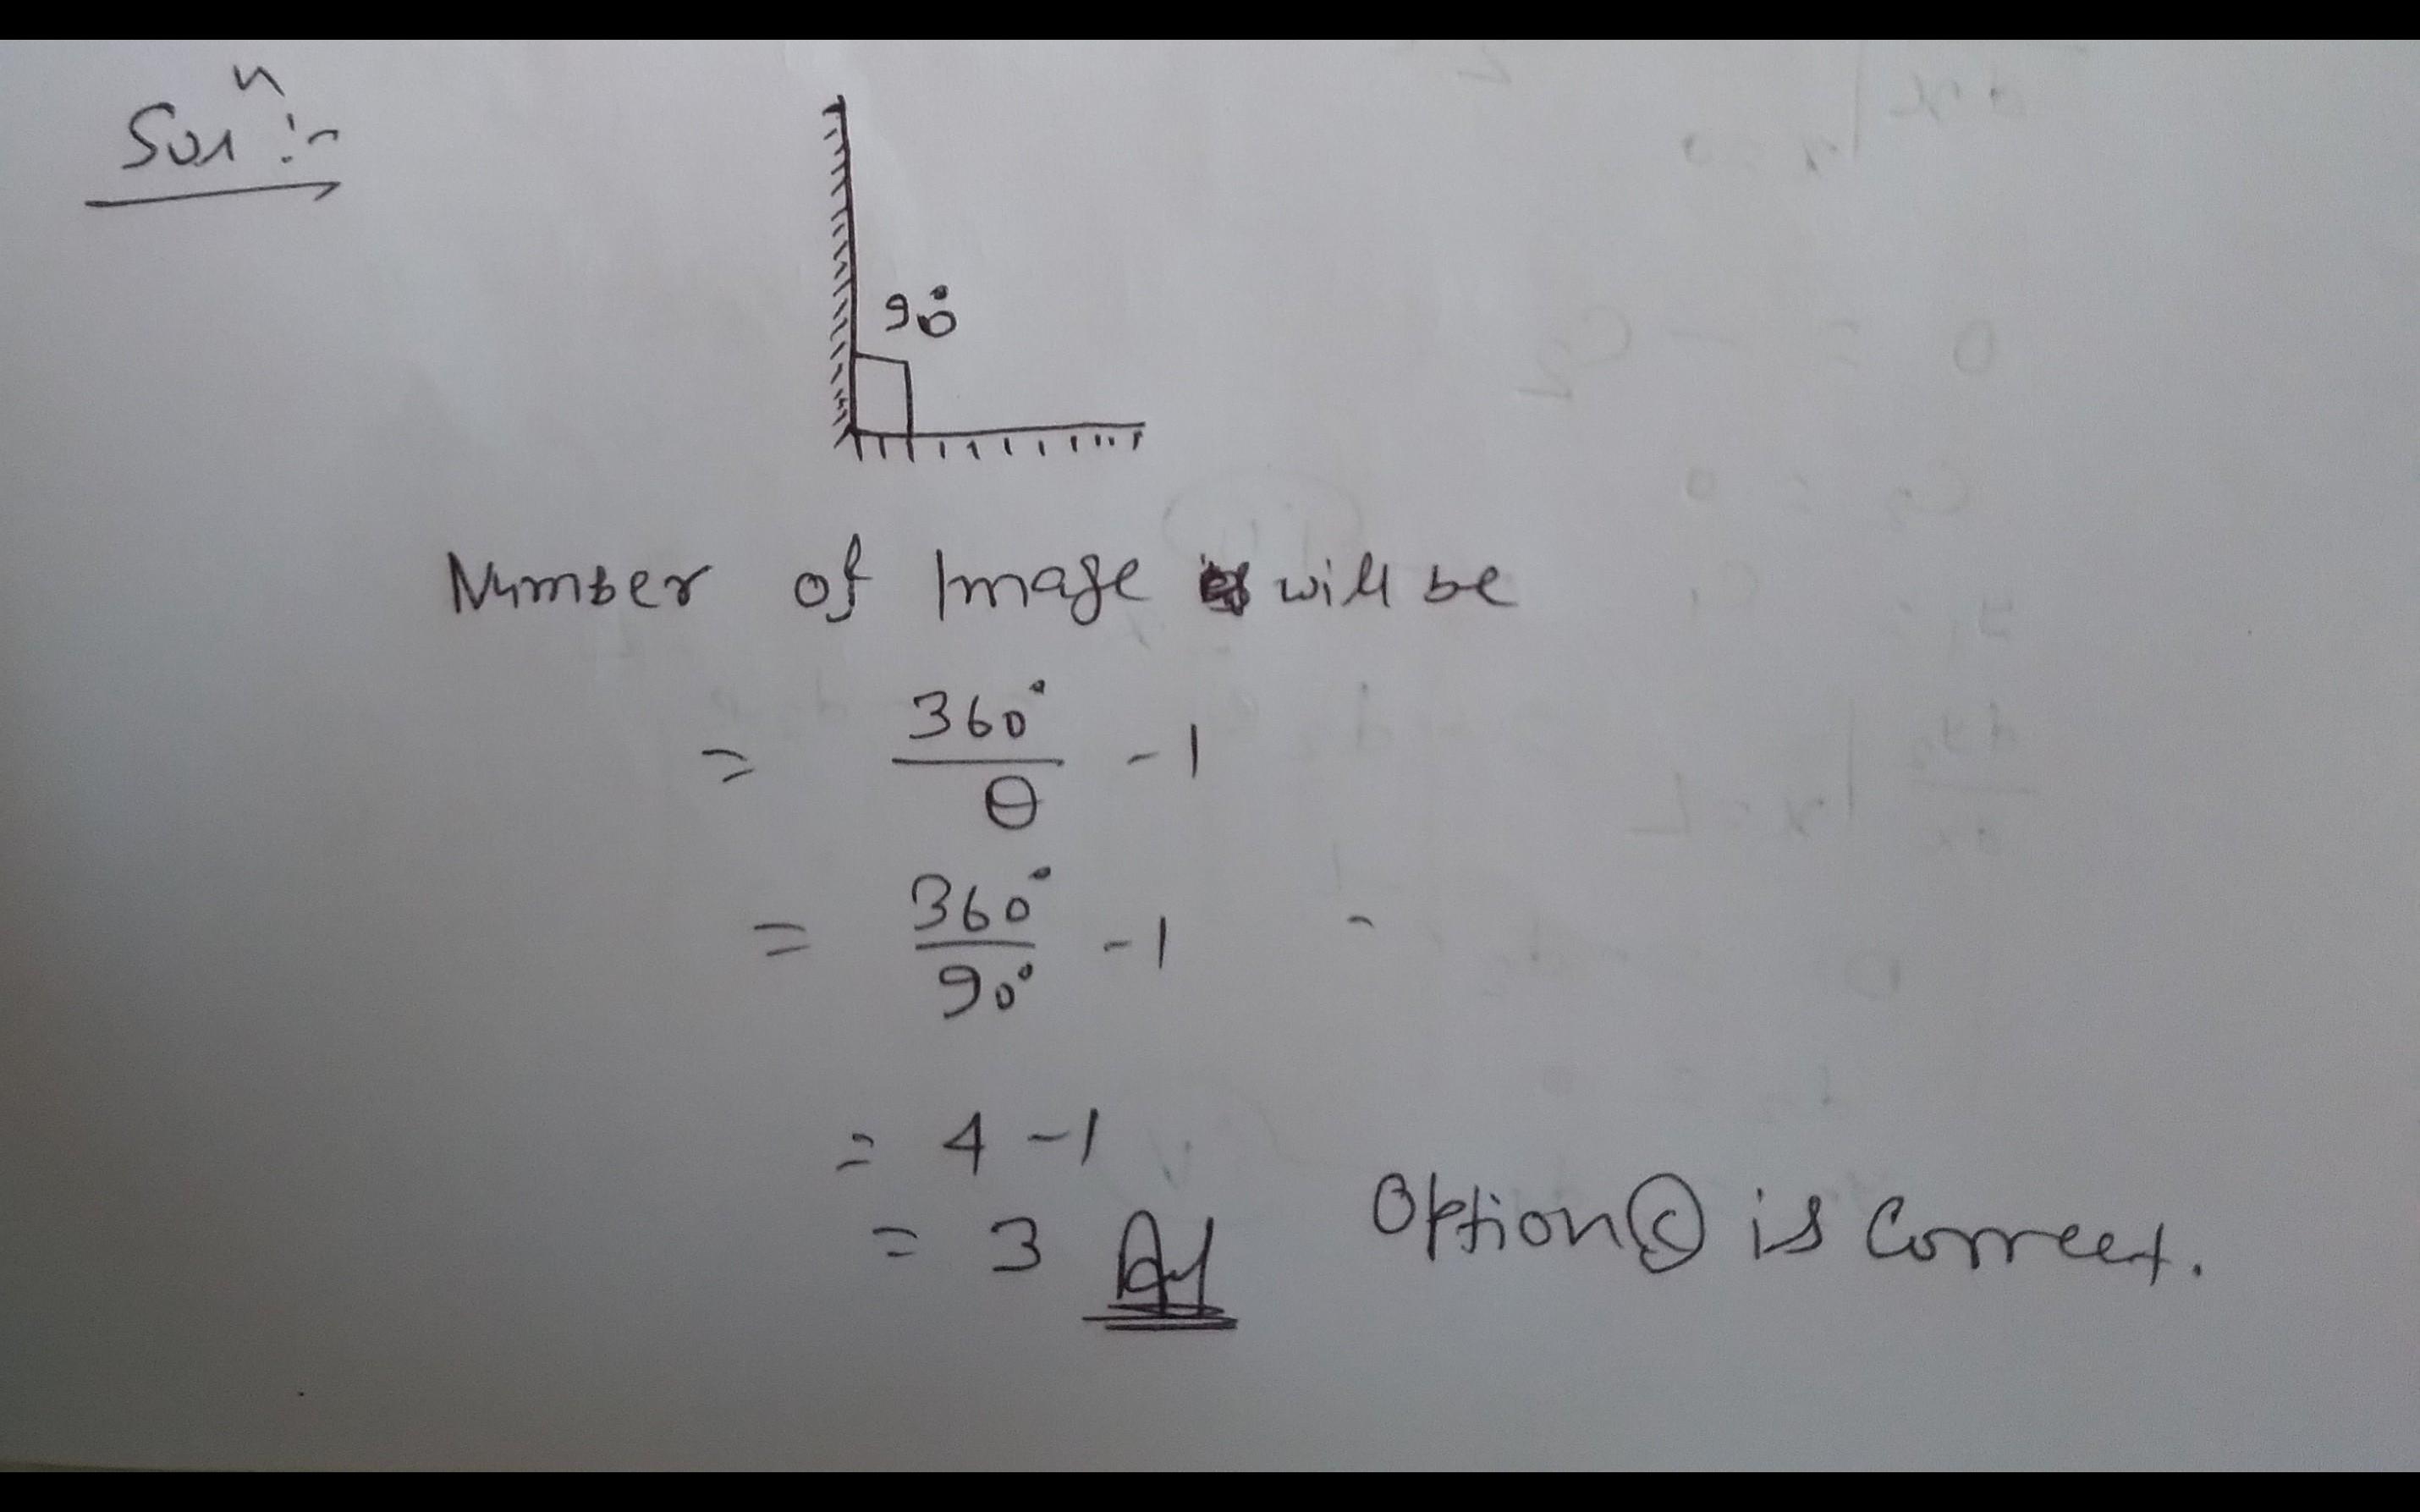 Soln :-
90°
Number of Image will be
= 360° / θ - 1
= 360° / 90° - 1
= 4 - 1
= 3 Ans Option (c) is correct.